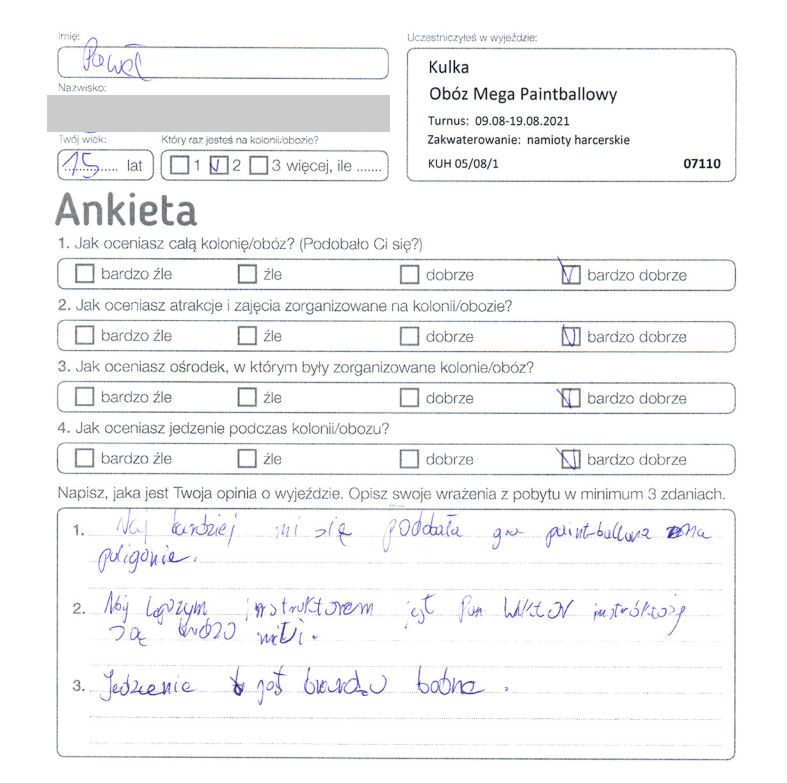 Imię:
Paweł
Nazwisko:
Twój wiek:
15 lat
Który raz jesteś na kolonii/obozie?
1 2 3 więcej, ile .......
Uczestniczyłeś w wyjeździe:
Kulka
Obóz Mega Paintballowy
Turnus: 09.08-19.08.2021
Zakwaterowanie: namioty harcerskie
KUH 05/08/1 07110
Ankieta
1. Jak oceniasz całą kolonię/obóz? (Podobało Ci się?)
bardzo źle źle dobrze bardzo dobrze
2. Jak oceniasz atrakcje i zajęcia zorganizowane na kolonii/obozie?
bardzo źle źle dobrze bardzo dobrze
3. Jak oceniasz ośrodek, w którym były zorganizowane kolonie/obóz?
bardzo źle źle dobrze bardzo dobrze
4. Jak oceniasz jedzenie podczas kolonii/obozu?
bardzo źle źle dobrze bardzo dobrze
Napisz, jaka jest Twoja opinia o wyjeździe. Opisz swoje wrażenia z pobytu w minimum 3 zdaniach.
1. Naj bardziej mi się gra paint-ballowa na
poligonie.
2. instruktorem jest Pan Wiktor
są
3. Jedzenie